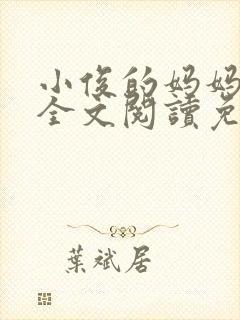 小俊的妈妈
全文閱讀免
葉斌居